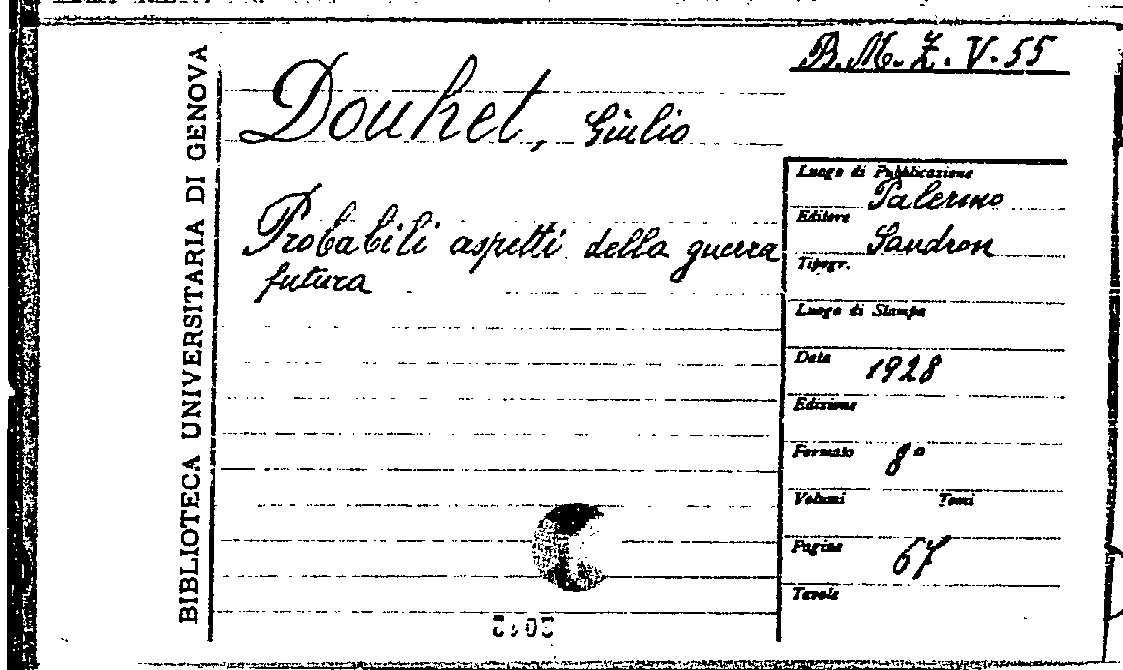 B.M.Z.V.55
BIBLIOTECA UNIVERSITARIA DI GENOVA
Douhet, Giulio
Probabili aspetti della guerra
futura
Luogo di Pubblicazione
Palermo
Editore
Sandron
Tipogr.
Luogo di Stampa
Data 1928
Edizione
Formato 8°
Volumi Tomi
Pagine 67
Tavole